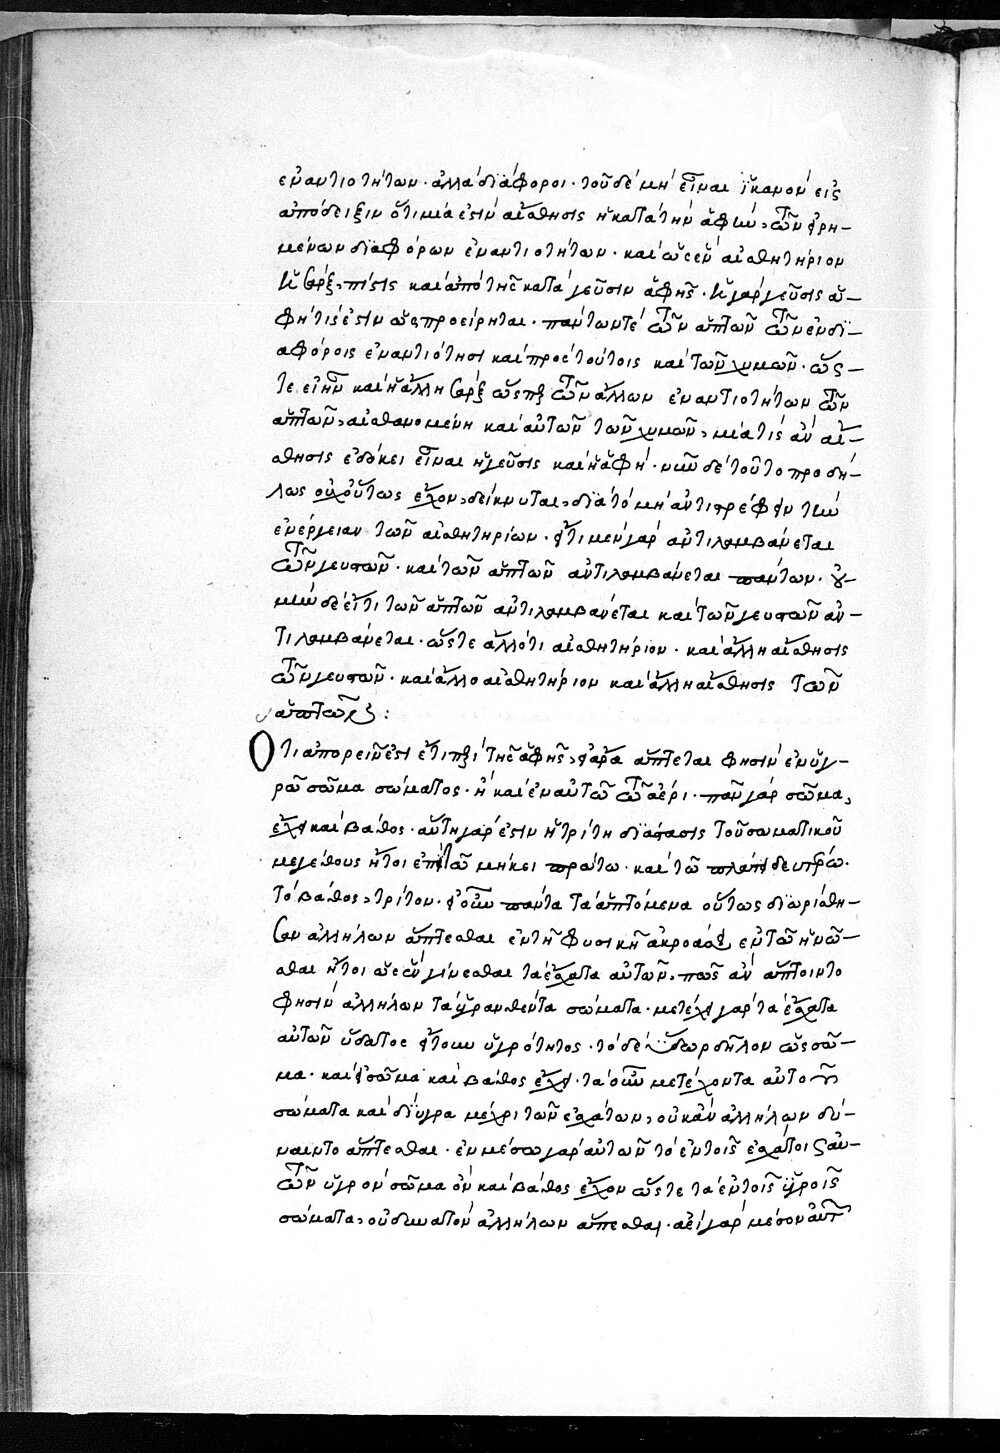 ἐναντιοτήτων· ἀλλὰ διάφοροι· τοῦ δὲ μὴ εἶναι ἱκανὸν εἰς
ἀπόδειξιν ὅτι μία ἐστὶν αἴσθησις ἡ κατὰ τὴν ἁφὴν, τῶν εἰρη-
μένων διαφόρων ἐναντιοτήτων· καὶ ὡς ἓν αἰσθητήριον
ἡ σὰρξ, πίστις καὶ ἀπὸ τῆς κατὰ γεῦσιν ἁφῆς· ἡ γὰρ γεῦσις ἁ-
φή τίς ἐστιν ὡς προείρηται· πάντων τε τῶν ἁπτῶν τῶν ἐν δι-
αφόροις ἐναντιότησι καὶ πρὸς τούτοις καὶ τῶν χυμῶν· ὥς-
τε εἰ ἦν καὶ ἡ ἄλλη σὰρξ ὥσπερ τῶν ἄλλων ἐναντιοτήτων τῶν
ἁπτῶν, αἰσθανομένη καὶ αὐτῶν τῶν χυμῶν, μία τις ἂν αἴ-
σθησις ἐδόκει εἶναι ἡ γεῦσις καὶ ἡ ἁφή· νῦν δὲ τοῦτο προδή-
λως οὐχ οὕτως ἔχον, δείκνυται, διὰ τὸ μὴ ἀντιστρέφειν τὴν
ἐνέργειαν τῶν αἰσθητηρίων· ᾧτινι μὲν γὰρ ἀντιλαμβάνεται
τῶν γευστῶν· καὶ τῶν ἁπτῶν ἀντιλαμβάνεται πάντων· οὐ
μὴν δὲ ἔτι τῶν ἁπτῶν ἀντιλαμβάνεται καὶ τῶν γευστῶν ἀν-
τιλαμβάνεται· ὥστε ἄλλό τι αἰσθητήριον· καὶ ἄλλη αἴσθησις
τῶν γευστῶν· καὶ ἄλλο αἰσθητήριον καὶ ἄλλη αἴσθησις τῶν
ἁπτῶν:
Ὅτι ἀπορεῖν ἔστι ἔτι περὶ τῆς ἁφῆς, εἰ ἄρα ἅπτεται φησὶν ἐν ὑγ-
ρῷ σῶμα σώματος· ἢ καὶ ἐν αὐτῷ τῷ ἀέρι· πᾶν γὰρ σῶμα,
ἔχει καὶ βάθος· αὕτη γάρ ἐστιν ἡ τρίτη διάστασις τοῦ σωματικοῦ
μεγέθους ἤτοι ἐπὶ τῷ μήκει πρώτῳ· καὶ τῷ πλάτει δευτέρῳ·
τὸ βάθος, τρίτον· εἰ οὖν πάντα τὰ ἁπτόμενα οὕτως διωρίσθη-
σαν ἀλλήλων ἅπτεσθαι ἐν τῇ φυσικῇ ἀκροάσει ἐν τῷ ἡνῶ-
σθαι ἤτοι ὡς ἓν γίνεσθαι τὰ ἔσχατα αὐτῶν, πῶς ἂν ἅπτοιντο
φησὶν ἀλλήλων τὰ ὑγρανθέντα σώματα· μετέχει γὰρ τὰ ἔσχατα
αὐτῶν ὕδατος ἤτοι ὑγρότητος· τὸ δὲ ὕδωρ δῆλον ὡς σῶ-
μα· καὶ εἰ σῶμα καὶ βάθος ἔχει· τὰ οὖν μετέχοντα αὐτοῦ
σώματα καὶ δίυγρα μέχρι τῶν ἐσχάτων, οὐκ ἂν ἀλλήλων δύ-
ναιντο ἅπτεσθαι· ἐν μέσῳ γὰρ αὐτῶν τὸ ἐν τοῖς ἐσχάτοις αὐ-
τῶν ὑγρὸν σῶμα ὂν καὶ βάθος ἔχον ὥστε τὰ ἐν τοῖς ὑγροῖς
σώματα, οὐ δυνατὸν ἀλλήλων ἅπτεσθαι· ἀεὶ γὰρ μέσον αὐτῶν